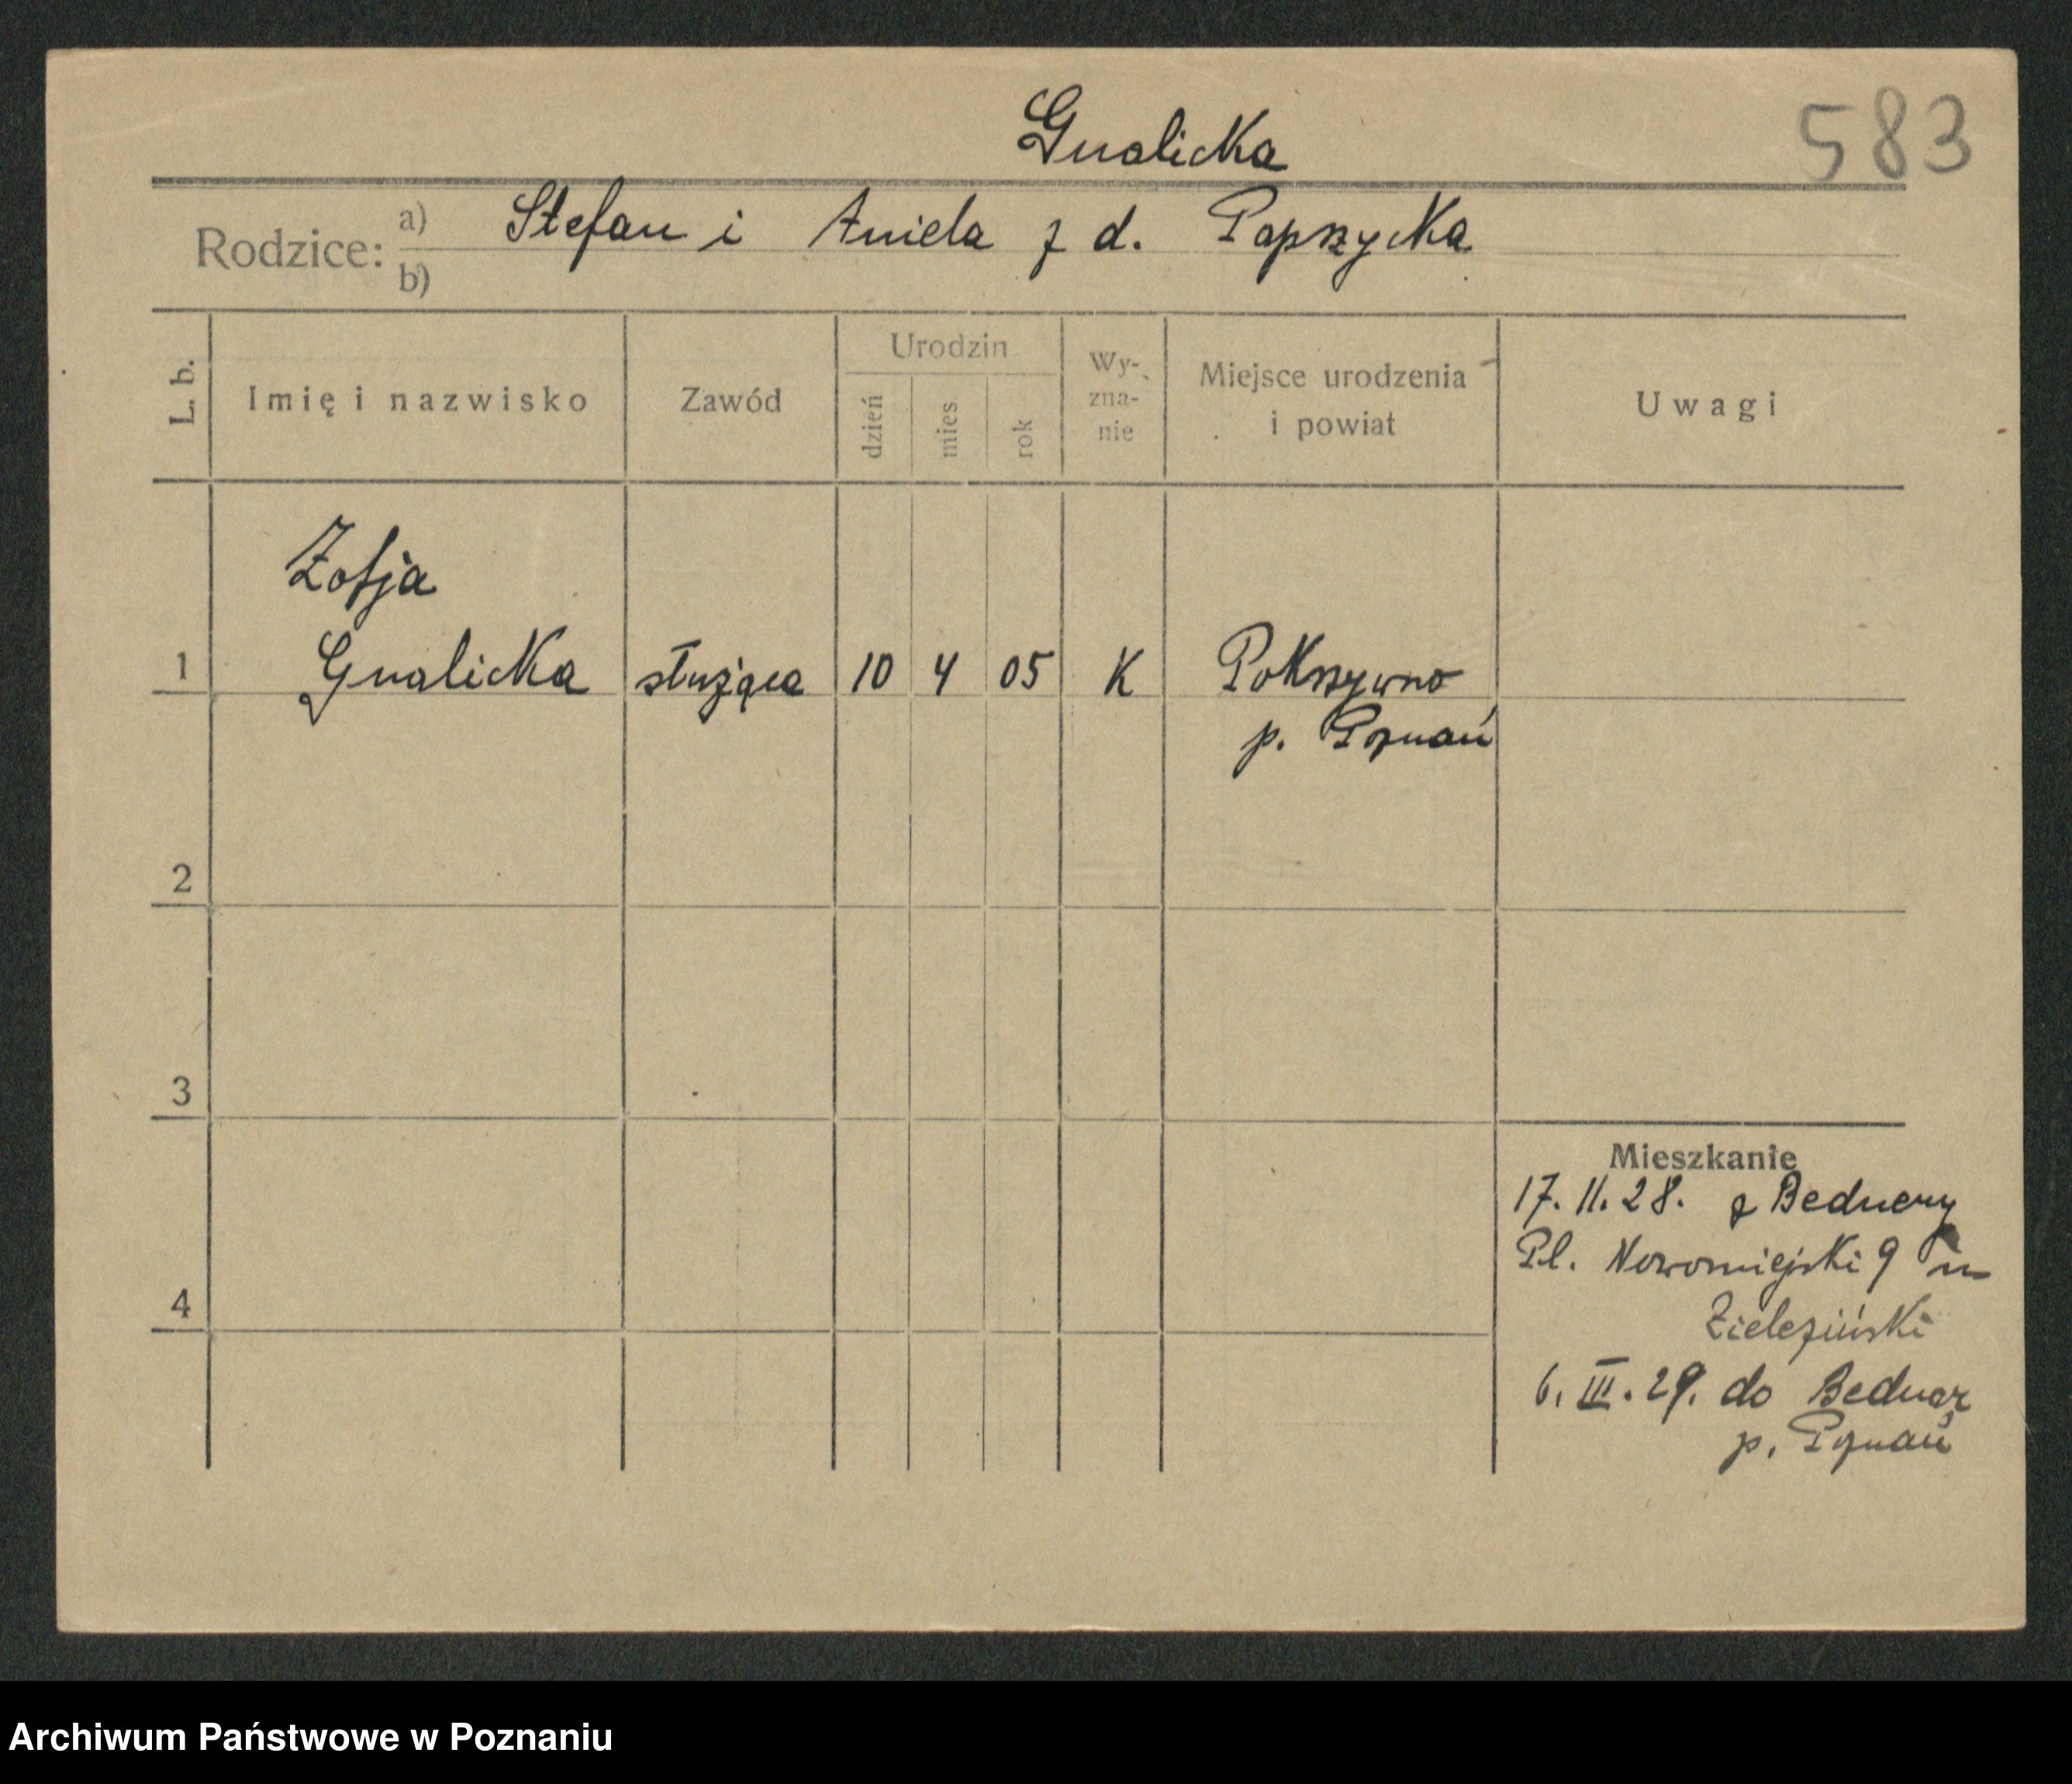 Gnalicka
583
Rodzice: a) Stefan i Aniela z d. Paprzycka
b)
L. b.
Imię i nazwisko
Zawód
Urodzin
dzień
mies.
rok
Wy-
zna-
nie
Miejsce urodzenia
i powiat
Uwagi
Zofja
1 Gnalicka służąca 10 4 05 K Pokrzywno
p. Poznań
2
3
4
Mieszkanie
17. 11. 28. z Bednery
Pl. Nowomiejski 9 m
Zieleziński
6. III. 29. do Bednar
p. Poznań
Archiwum Państwowe w Poznaniu